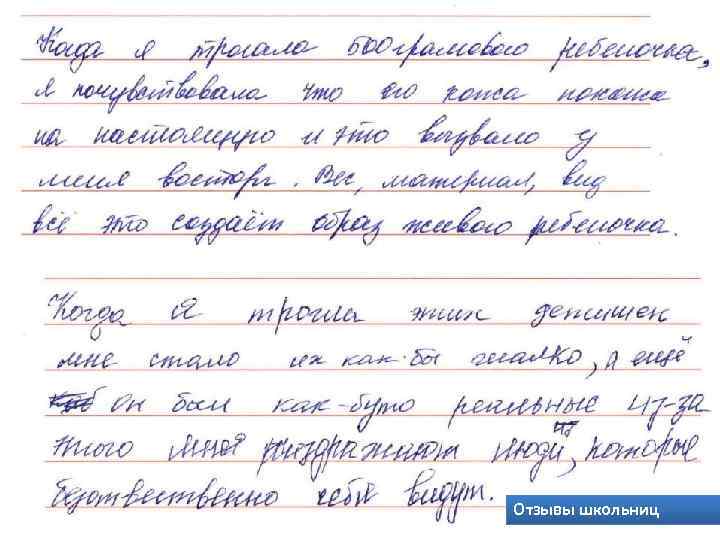 Когда я трогала 500 грамового ребеночка,
я почувствовала что его кожа похожа
на настоящую и это вызвало у
меня восторг. Вес, материал, вид
всё это создаёт образ живого ребеночка.
Когда я трогла этих детишек
мне стало их как-бы жалко, а ещё
он был как-буто реальные из-за
этого меня раздражают люди, которые
безотвественно себя видут.
Отзывы школьниц